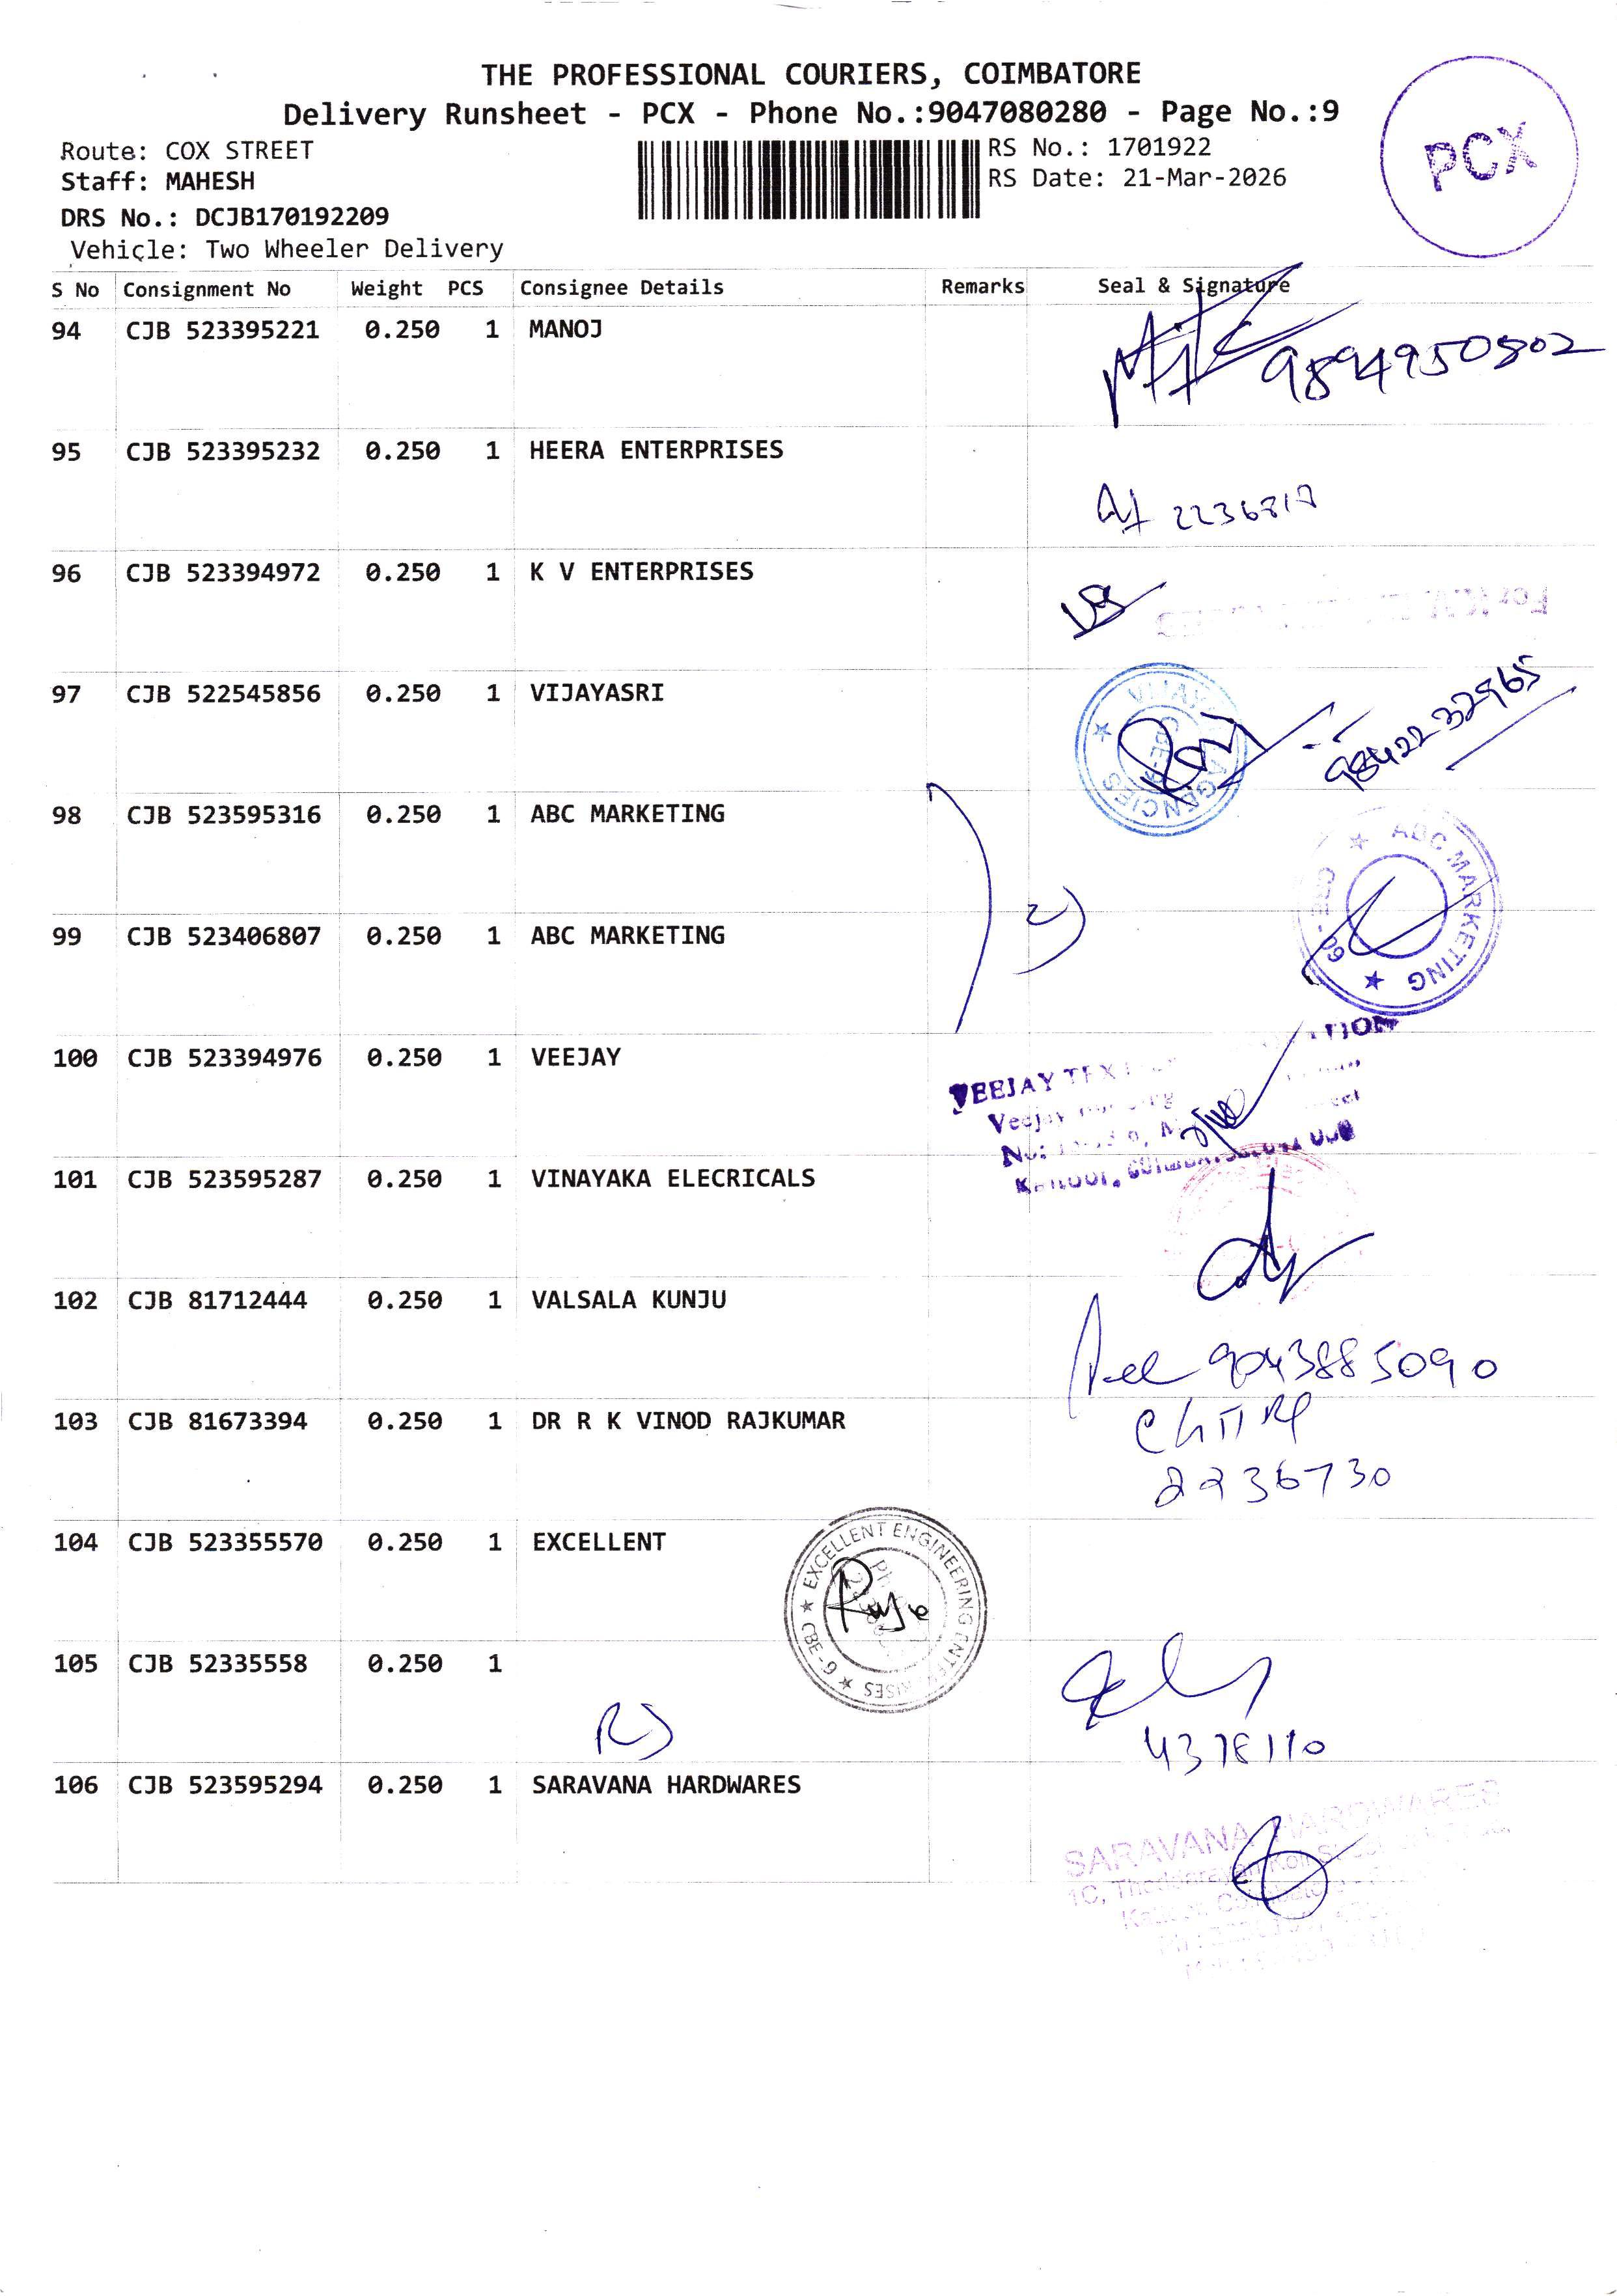 THE PROFESSIONAL COURIERS, COIMBATORE
Delivery Runsheet - PCX - Phone No.:9047080280 - Page No.:9
PCX
Route: COX STREET
RS No.: 1701922
Staff: MAHESH
RS Date: 21-Mar-2026
DRS No.: DCJB170192209
Vehicle: Two Wheeler Delivery
S No Consignment No Weight PCS Consignee Details Remarks Seal & Signature
94 CJB 523395221 0.250 1 MANOJ
9894950802
95 CJB 523395232 0.250 1 HEERA ENTERPRISES
96 CJB 523394972 0.250 1 K V ENTERPRISES
97 CJB 522545856 0.250 1 VIJAYASRI
AGENCIES
98422 32965
98 CJB 523595316 0.250 1 ABC MARKETING
2)
ABC MARKETING
CBE - 09
99 CJB 523406807 0.250 1 ABC MARKETING
100 CJB 523394976 0.250 1 VEEJAY
VEEJAY
Veejay
101 CJB 523595287 0.250 1 VINAYAKA ELECRICALS
102 CJB 81712444 0.250 1 VALSALA KUNJU
9043885090
103 CJB 81673394 0.250 1 DR R K VINOD RAJKUMAR
2236730
104 CJB 523355570 0.250 1 EXCELLENT
EXCELLENT ENGINEERING
CBE - 9
105 CJB 52335558 0.250 1
4378110
106 CJB 523595294 0.250 1 SARAVANA HARDWARES
SARAVANA HARDWARES
1C,